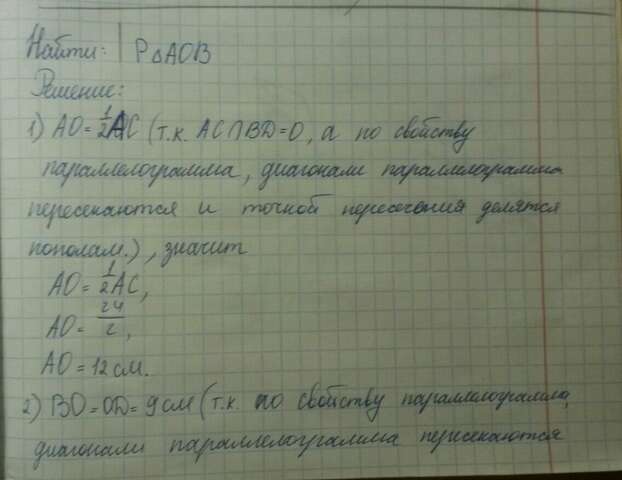 Найти: P△AOB
Решение:
1) AO = 1/2 AC (т.к. AC∩BD=O, а по свойству
параллелограмма, диагонали параллелограмма
пересекаются и точкой пересечения делятся
пополам.), значит
AO = 1/2 AC,
AO = 24/2,
AO = 12 см.
2) BO = OD = 9 см (т.к. по свойству параллелограмма,
диагонали параллелограмма пересекаются